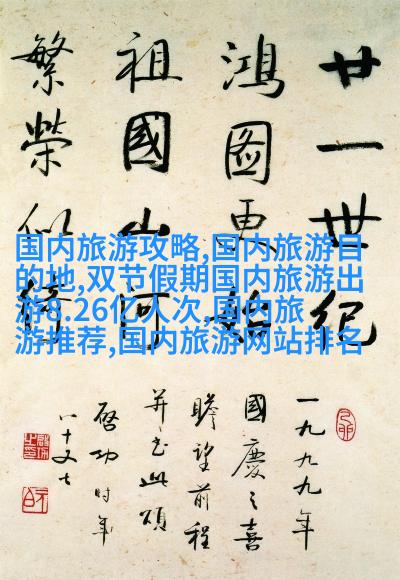 廿一世纪
鸿图更
祖國山河
繁榮似
国内旅游攻略,国内旅游目
的地,双节假期国内旅游出
游8.26亿人次,国内旅
游推荐,国内旅游网站排名
一九九九年
國慶之喜
瞻望前程
并书此頌
啓功时年
八十又七